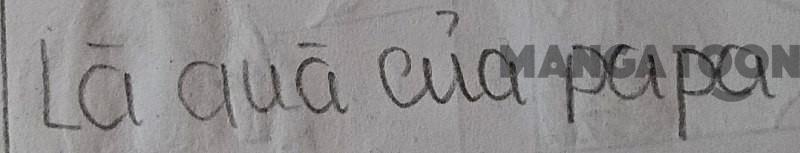 Lā quā của papa
MANGATOON